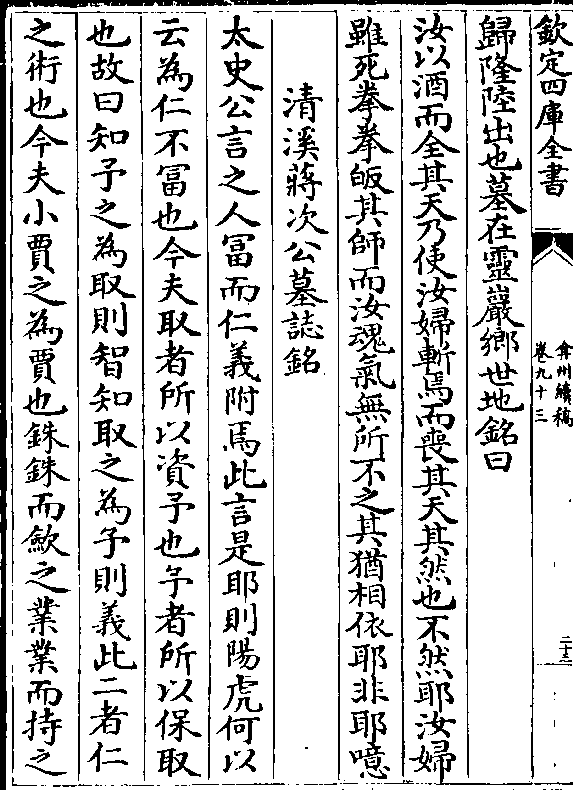 欽定四庫全書
弇州續稿
卷九十三
二十三
歸隆陸出也墓在靈巖鄉世地銘曰
汝以酒而全其天乃使汝婦斬焉而喪其天其然也不然耶汝婦
雖死拳拳皈其師而汝魂氣無所不之其猶相依耶非耶噫
清溪蔣次公墓誌銘
太史公言之人冨而仁義附焉此言是耶則陽虎何以
云為仁不冨也今夫取者所以資予也予者所以保取
也故曰知予之為取則智知取之為予則義此二者仁
之術也今夫小賈之為賈也銖銖而歛之業業而持之